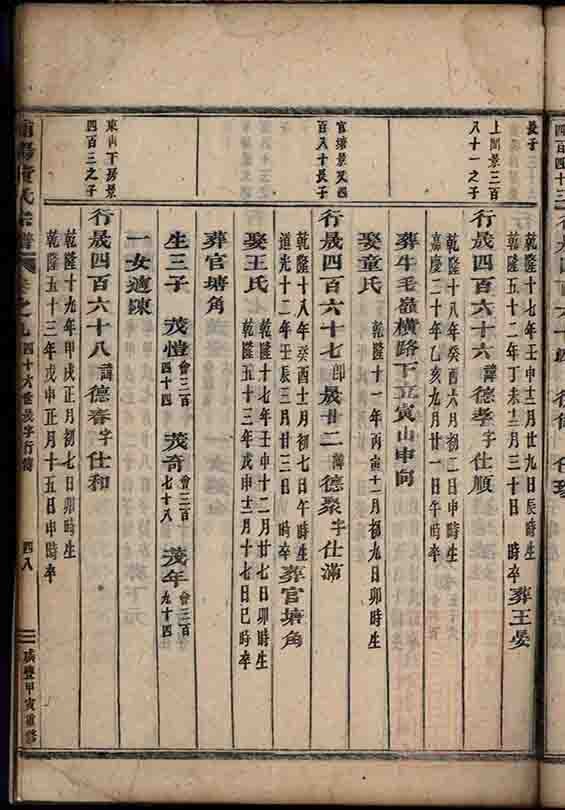 四百四十三
長子
乾隆十七年壬申十二月廿九日辰時生
乾隆五十二年丁未十二月三十日 時卒 葬王晏
上閣景三百
八十一之子
行晟四百六十六 諱德孝 字仕順
乾隆十八年癸酉六月初二日申時生
嘉慶二十年乙亥九月廿一日午時卒
葬牛毛嶺橫路下立寅山申向
娶童氏 乾隆十一年丙寅十一月初九日卯時生
官塘景又四
百八十長子
行晟四百六十七郎 晟廿二 諱德聚 字仕滿
乾隆十八年癸酉十一月初七日午時生
道光十二年壬辰三月廿三日 時卒 葬官塘角
娶王氏 乾隆十七年壬申十二月廿七日卯時生
乾隆五十三年戊申十二月十七日巳時卒
葬官塘角
生三子 茂愷 會三百四十四 茂奇 會三百七十八 茂年 會三百九十四
一女適陳
東山下房景
四百三之子
行晟四百六十八 諱德春 字仕和
乾隆十九年甲戌正月初七日卯時生
乾隆五十三年戊申正月十五日申時卒
氏宗譜 卷之九 四十六世晟字行傳 四八 咸豐甲寅重修